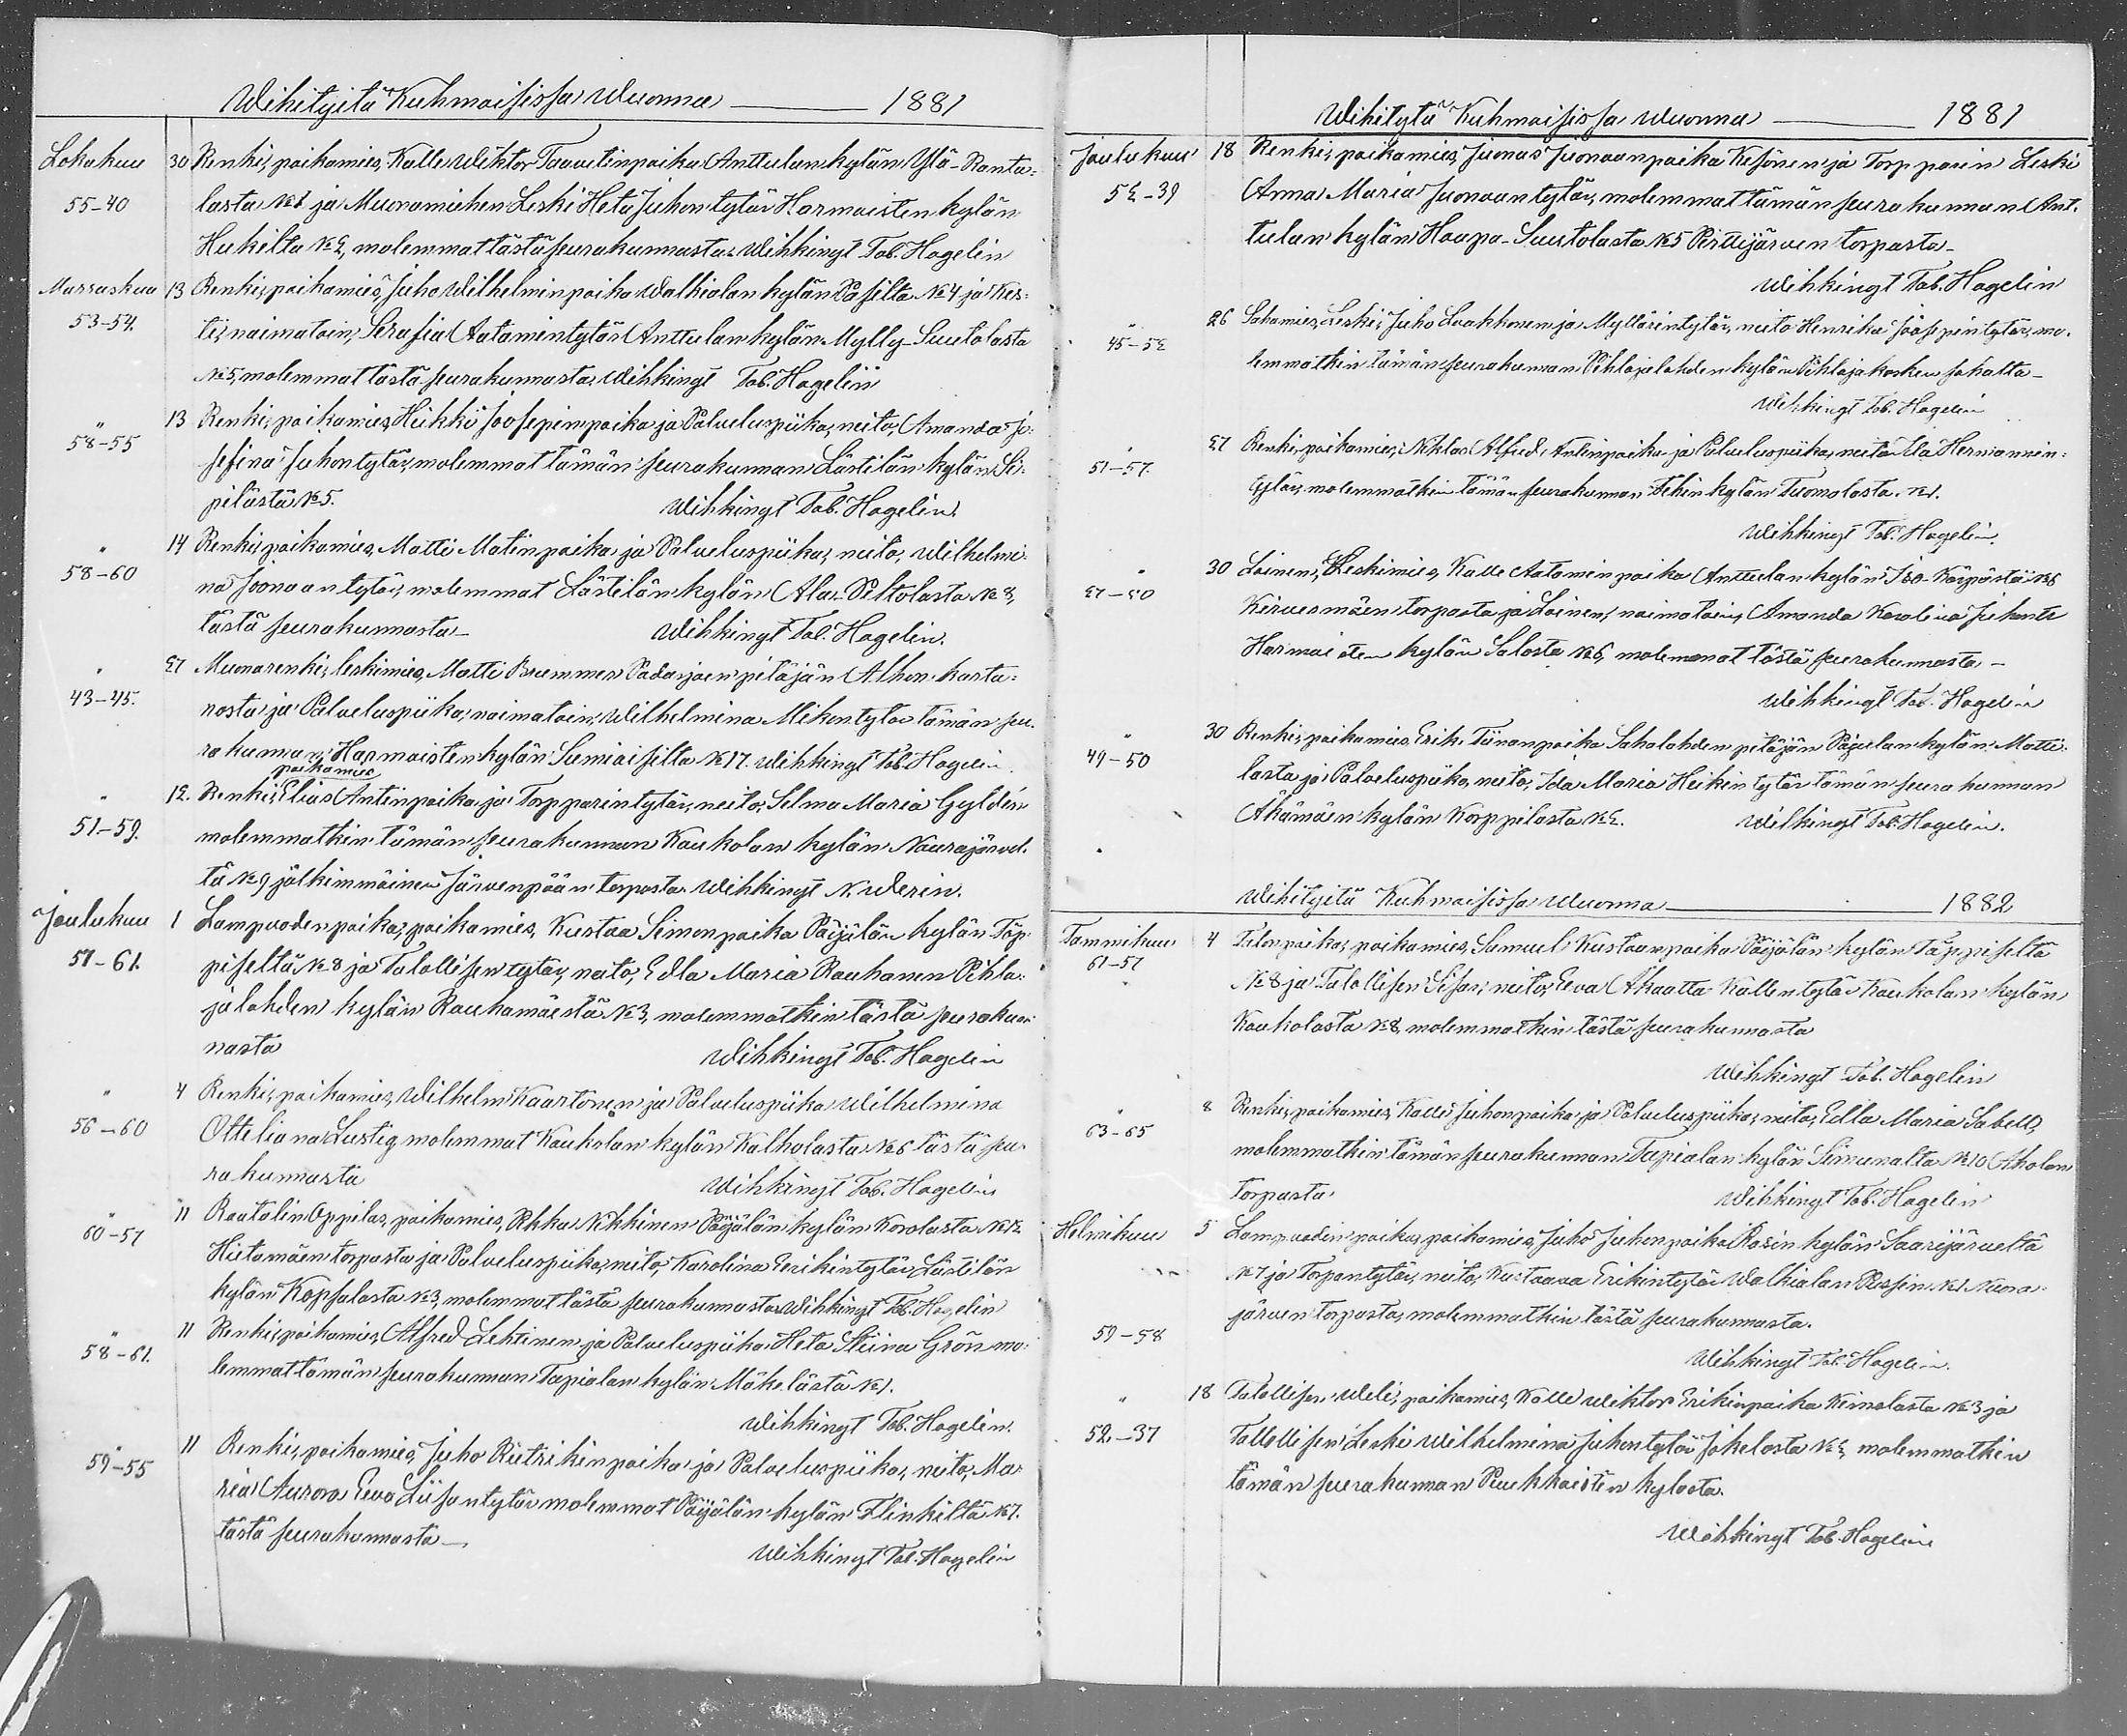 Wihityitä Kuhmaisissa Wuonna 1881
Lokakuu 30 Renki, poikamies, Kalle Wiktor Taavetinpoika Anttulan kylän Ylä-Ranta-
55-40 lasta № 1 ja Muonamiehen Leski Heta Juhon tytär Harmaisten kylän
Hukilta № 2, molemmat tästä seurakunnasta. Wihkinyt Tob. Hagelin
Marraskuu 13 Renki, poikamies, Juho Wilhelminpoika Walkialan kylän Päsiltä № 4 ja Kes-
53-54. ti, naimatoin, Serafia Aatamintytär Anttulan kylän Mylly-Suutolasta
№ 5, molemmat tästä seurakunnasta, Wihkinyt Tob. Hagelin
" 13 Renki, poikamies, Heikki Joosepinpoika ja Palveluspiika, neito, Amanda Jo-
58-55 sefina Juhontytär, molemmat tämän seurakunnan Lästilän kylän Si-
pilästä № 5. Wihkinyt Tob. Hagelin.
" 14 Renki, poikamies, Matti Matinpoika ja Palveluspiika, neito, Wilhelmi-
58-60 na Joonaantytär, molemmat Lästilän kylän Ala-Peltolasta № 8,
tästä seurakunnasta- Wihkinyt Tob. Hagelin.
" 27 Muonarenki, leskimies, Matti Brummer Padasjoen pitäjän Alhon karta-
43-45. nosta ja Palveluspiika, naimatoin, Wilhelmina Mikontytär tämän seu-
rakunnan, Harmaisten kylän Sumiaisilta № 17. Wihkinyt Tob. Hagelin
poikamies
" 12. Renki, Elias Antinpoika ja Torpparintytär, neito, Selma Maria Gyldén
51-59. molemmatkin tämän seurakunnan Kaukolan kylän Naurajärvel-
tä № 9 jälkimmäinen Järvenpään torpasta. Wihkinyt N. Werin.
Joulukuu 1 Lampuodenpoika, poikamies, Kustaa Simonpoika Päijälän kylän Täp-
51-61. piseltä № 8 ja Talollisen tytär, neito, Edla Maria Rauhanen Pihla-
jalahden kylän Rauhamäestä № 3, molemmatkin tästä seurakun-
nasta Wihkinyt Tob. Hagelin
" 4 Renki, poikamies, Wilhelm Kaartonen ja Palveluspiika Wilhelmina
56-60 Otteliana Lustig molemmat Kaukolan kylän Kalholasta № 6 tästä seu-
rakunnasta Wihkinyt Tob. Hagelin
" 11 Raatalin Oppilas, poikamies, Pekka Nikkinen Päijälän kylän Korolasta № 12
60-57 Hietamäen torpasta ja Palveluspiika, neito, Karolina Eerikintytär, Lästilän
kylän Kopsalasta № 3, molemmat tästä seurakunnasta. Wihkinyt Tob. Hagelin
" 11 Renki, poikamies, Alfred Lehtinen ja Palveluspiika Heta Stiina Grön mo-
58-61. lemmat tämän seurakunnan Tapialan kylän Mäkelästä № 1.
Wihkinyt Tob. Hagelin.
" 11 Renki, poikamies, Juho Rietrikinpoika ja Palveluspiika, neito, Ma-
59-55 ria Aurora Eeva Liisantytär molemmat Päijälän kylän Flinkiltä № 7.
tästä seurakunnasta- Wihkinyt Tob. Hagelin
Wihitytä Kuhmaisissa Wuonna 1881
Joulukuu 18 Renki, poikamies, Juonas Juonaanpoika Kejonen ja Torpparin Leski
52-39 Anna Maria Juonaantytär, molemmat tämän seurakunnan Ant-
tulan kylän Haapa-Suutolasta № 5 Pirttijärven torpasta-
Wihkinyt Tob. Hagelin
" 26 Sahamies, Leski, Juho Laakkonen ja Myllärintytär, neito Henrika Joosepintytär, mo-
45-52 lemmatkin tämän seurakunnan Pihlajalahden kylän Pihlajakosken sahalta-
Wihkinyt Tob. Hagelin
" 27 Renki, poikamies, Niklas Alfred Antinpoika ja Palveluspiika, neito Ida Hermannin-
51-57. tytär, molemmatkin tämän seurakunnan Pihin kylän Tuomolasta. № 1.
Wihkinyt Tob. Hagelin.
" 30 Loinen, Leskimies, Kalle Aataminpoika Anttulan kylän Iso-Kärpästä № 6
27-20 Kirvesmäen torpasta ja Loinen, naimatoin, Amanda Karolina Juhontr
Harmaisten kylän Salosta № 6, molemmat tästä seurakunnasta-
Wihkinyt Tob. Hagelin
" 30 Renki, poikamies, Erik Tiinanpoika Sahalahden pitäjän Pajulan kylän Matti-
49-50 lasta ja Palveluspiika, neito, Ida Maria Heikintytär tämän seurakunnan
Äkämäen kylän Korppilasta № 2. Wihkinyt Tob. Hagelin.
Wihityitä Kuhmaisissa Wuonna 1882
Tammikuu 4 Talonpoika, poikamies, Samuel Kustaanpoika Päijälän kylän Täppiseltä
61-51 № 8 ja Talollisen Sisar, neito, Eeva Akaatta Kallentytär Kaukolan kylän
Kaukolasta № 8, molemmatkin tästä seurakunnasta
Wihkinyt Tob. Hagelin
" 8 Renki, poikamies, Kalle Juhonpoika ja Palveluspiika, neito, Edla Maria Sabell,
63-65 molemmatkin tämän seurakunnan Tapialan kylän Simunalta № 10 Aholan
torpasta. Wihkinyt Tob. Hagelin
Helmikuu 5 Lampuodinpoika, poikamies, Juho Juhonpoika Pasin kylän Saarijärveltä
№ 7 ja Torpantytär, neito, Kustaava Erikintytär Walkialan Rossin № 1 Nuora-
59-58 järven torpasta, molemmatkin tästä seurakunnasta.
Wihkinyt Tob. Hagelin.
" 18 Talollisen Weli, poikamies, Kalle Wiktor Erikinpoika Keinolasta № 3 ja
52-37 Tallollisen Leski Wilhelmina Juhontytär Jokelasta № 2, molemmatkin
tämän seurakunnan Puukkoisten kylästä.
Wihkinyt Tob. Hagelin